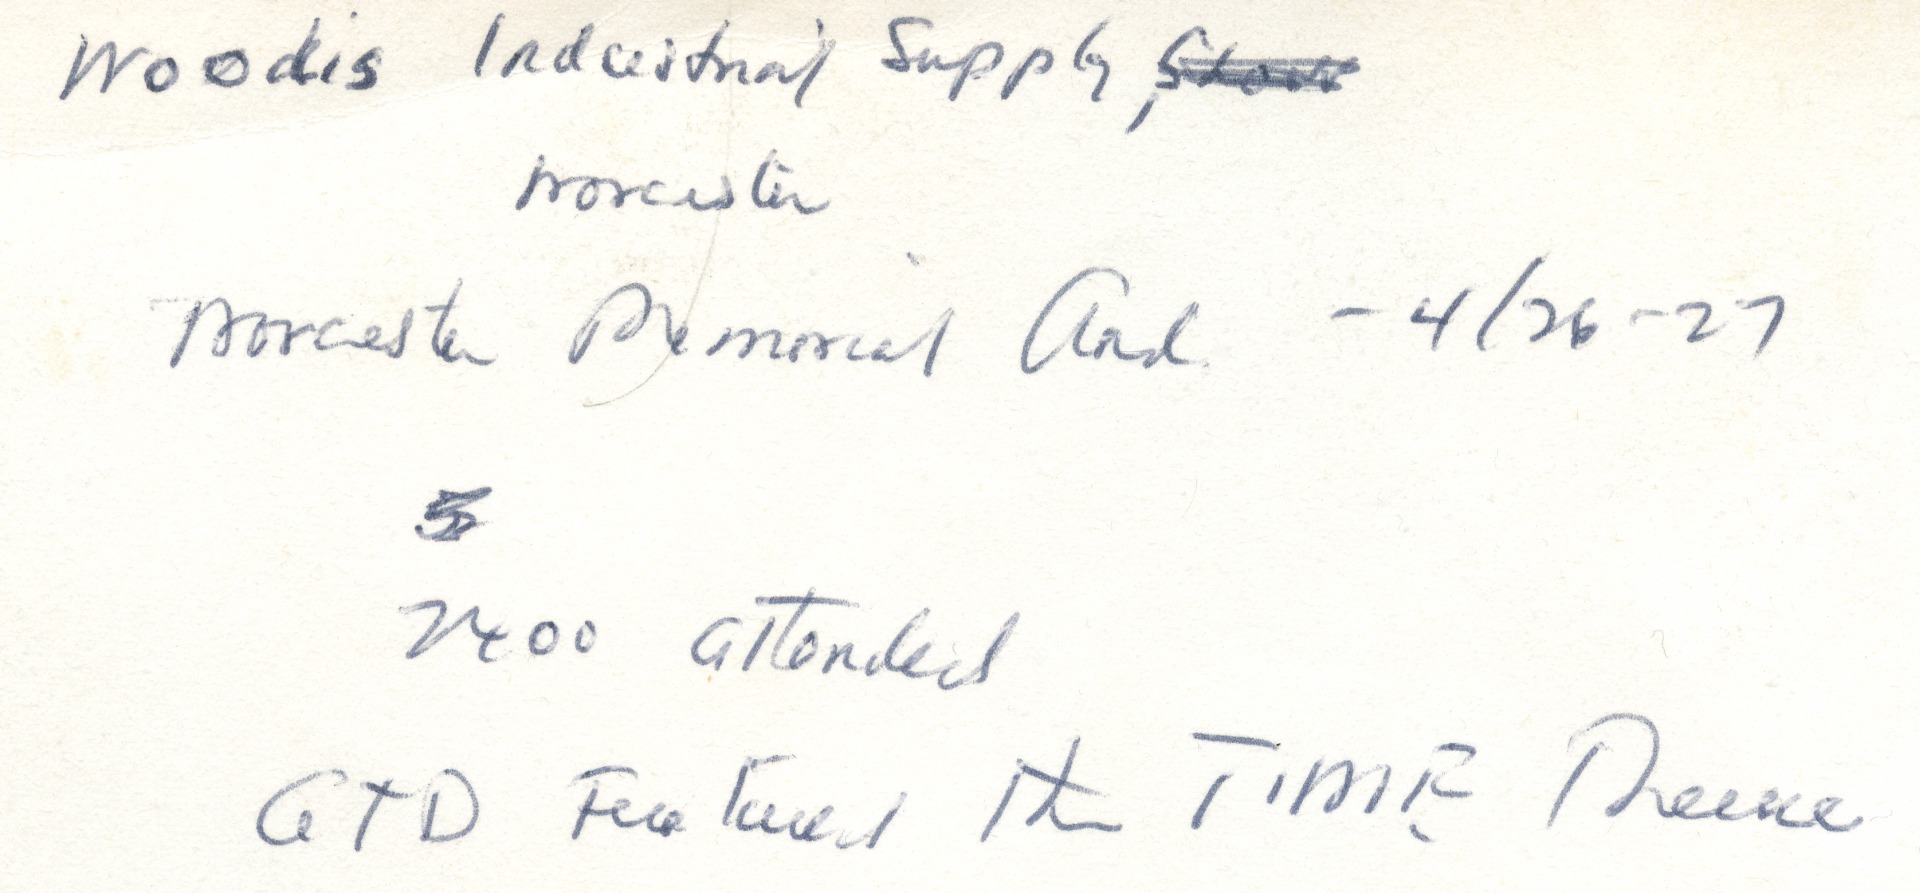 Woodis Industrial Supply,
Worcester
Worcester Memorial Aud. - 4/26-27
2400 attended
GTD Featured the TIME Theme